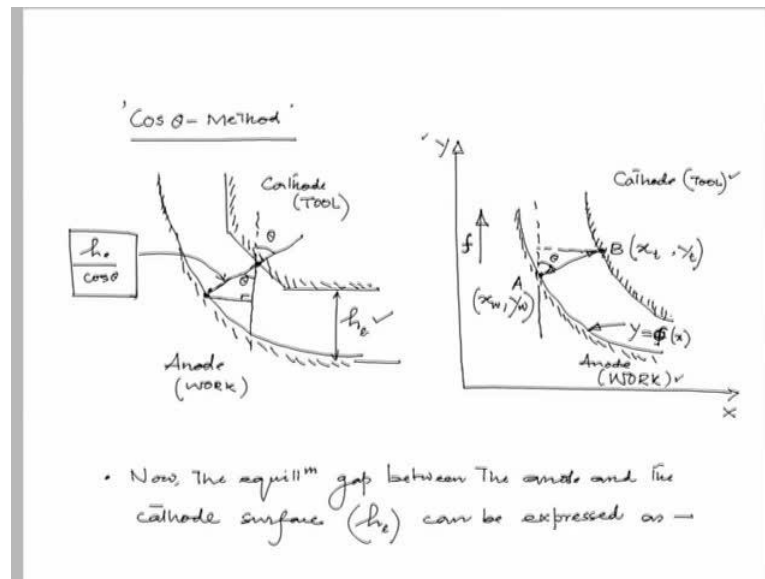 'Cos θ - Method'
Cathode
(TOOL)
θ
θ
hₑ/cosθ
hₑ ✓
Anode
(WORK)
✓ Y
Cathode (TOOL) ✓
f
θ
B (xₜ, yₜ)
A
(x_w, y_w)
Y = φ(x)
Anode
(WORK) ✓
X
• Now, The equillᵐ gap between The anode and The
cathode surface (hₑ) can be expressed as —